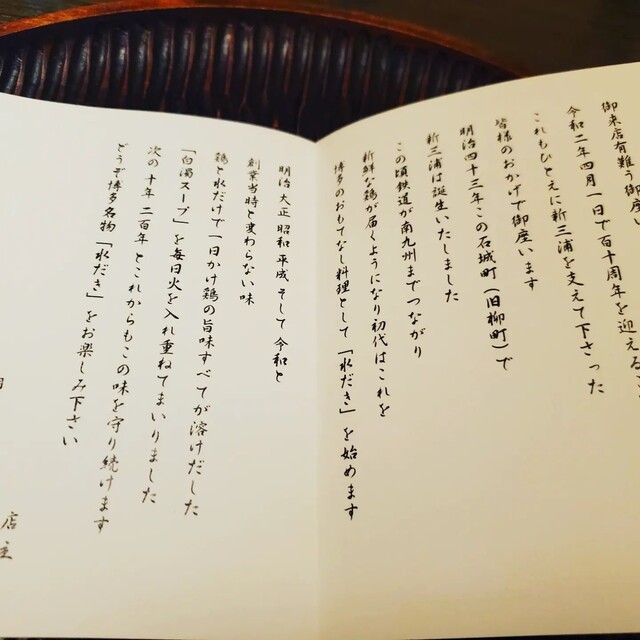 御来店有難う御座い
令和二年四月一日で百十周年を迎える
これもひとえに新三浦を支えて下さった
皆様のおかげで御座います
明治四十三年この石城町（旧柳町）で
新三浦は誕生いたしました
この頃鉄道が南九州までつながり
新鮮な鶏が届くようになり初代はこれを
博多のおもてなし料理として「水だき」を始めます
明治 大正 昭和 平成 そして 令和と
創業当時と変わらない味
鶏と水だけで一日かけ鶏の旨味すべてが溶けだした
「白濁スープ」を毎日火を入れ重ねてまいりました
次の十年 二百年とこれからもこの味を守り続けます
どうぞ博多名物「水だき」をお楽しみ下さい
店主